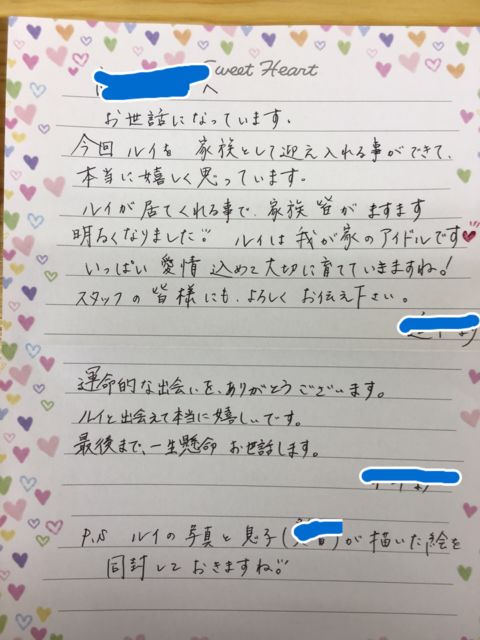 Sweet Heart
へ
お世話になっています。
今回 ルイを 家族として迎え入れる事ができて、
本当に嬉しく思っています。
ルイが居てくれる事で、家族皆がますます
明るくなりました!! ルイは我が家のアイドルです♥
いっぱい愛情込めて大切に育てていきますね!
スタッフの皆様にも、よろしくお伝え下さい。
より
運命的な出会いを、ありがとうございます。
ルイと出会えて本当に嬉しいです。
最後まで、一生懸命お世話します。
より
P.S ルイの写真と息子( )が描いた絵を
同封しておきますね!!